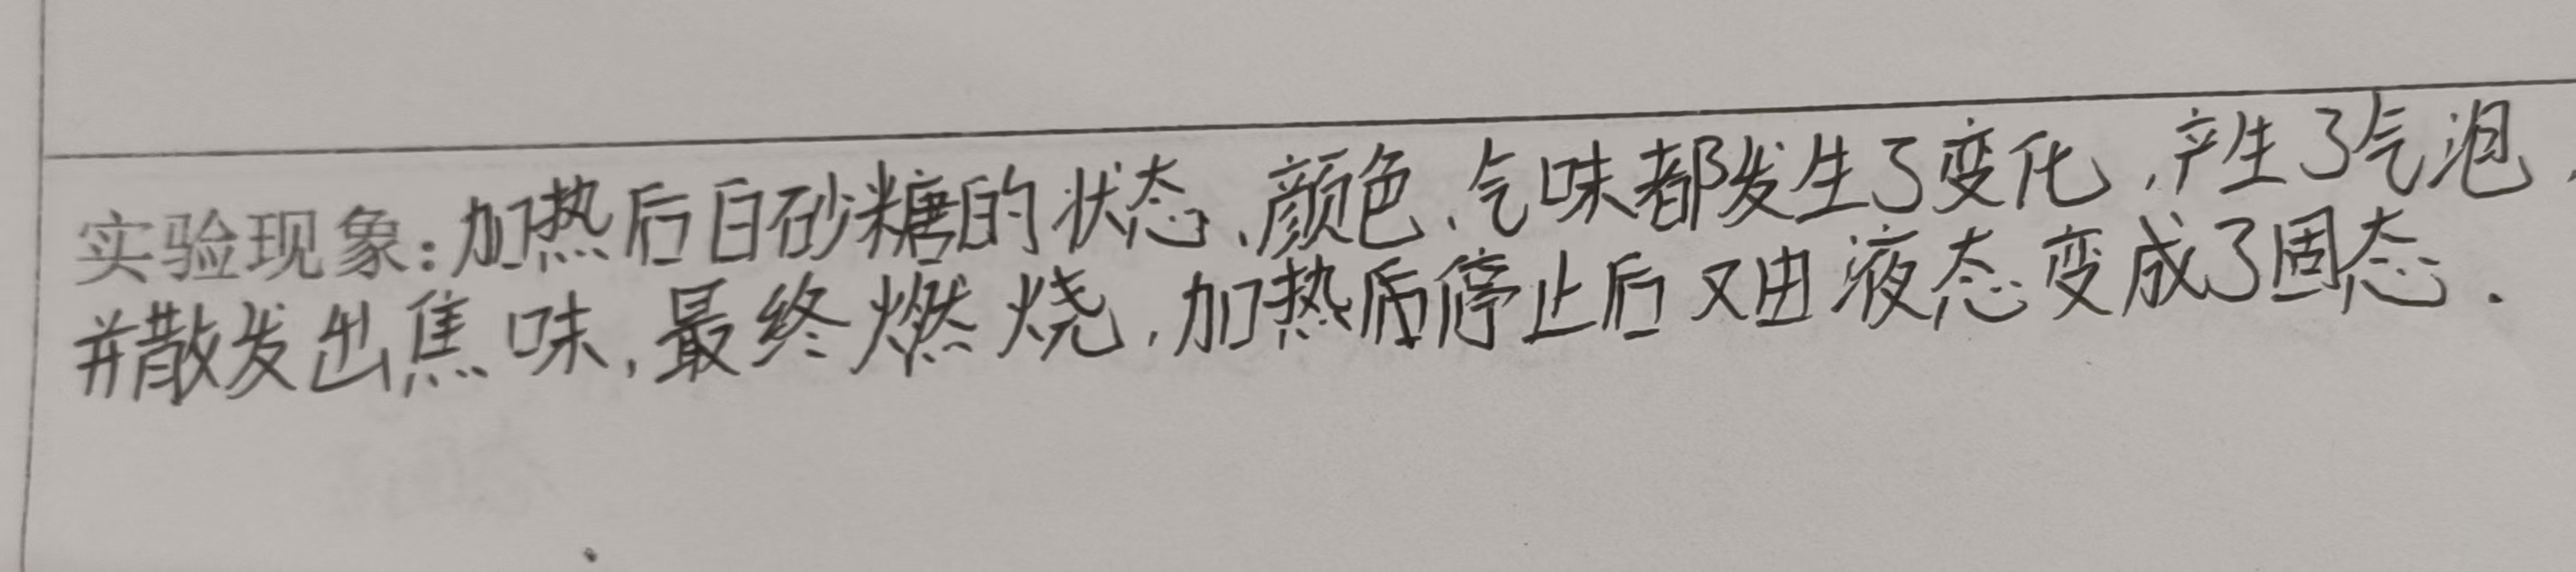 实验现象：加热后白砂糖的状态、颜色、气味都发生了变化，产生了气泡，
并散发出焦味，最终燃烧，加热后停止后又由液态变成了固态．